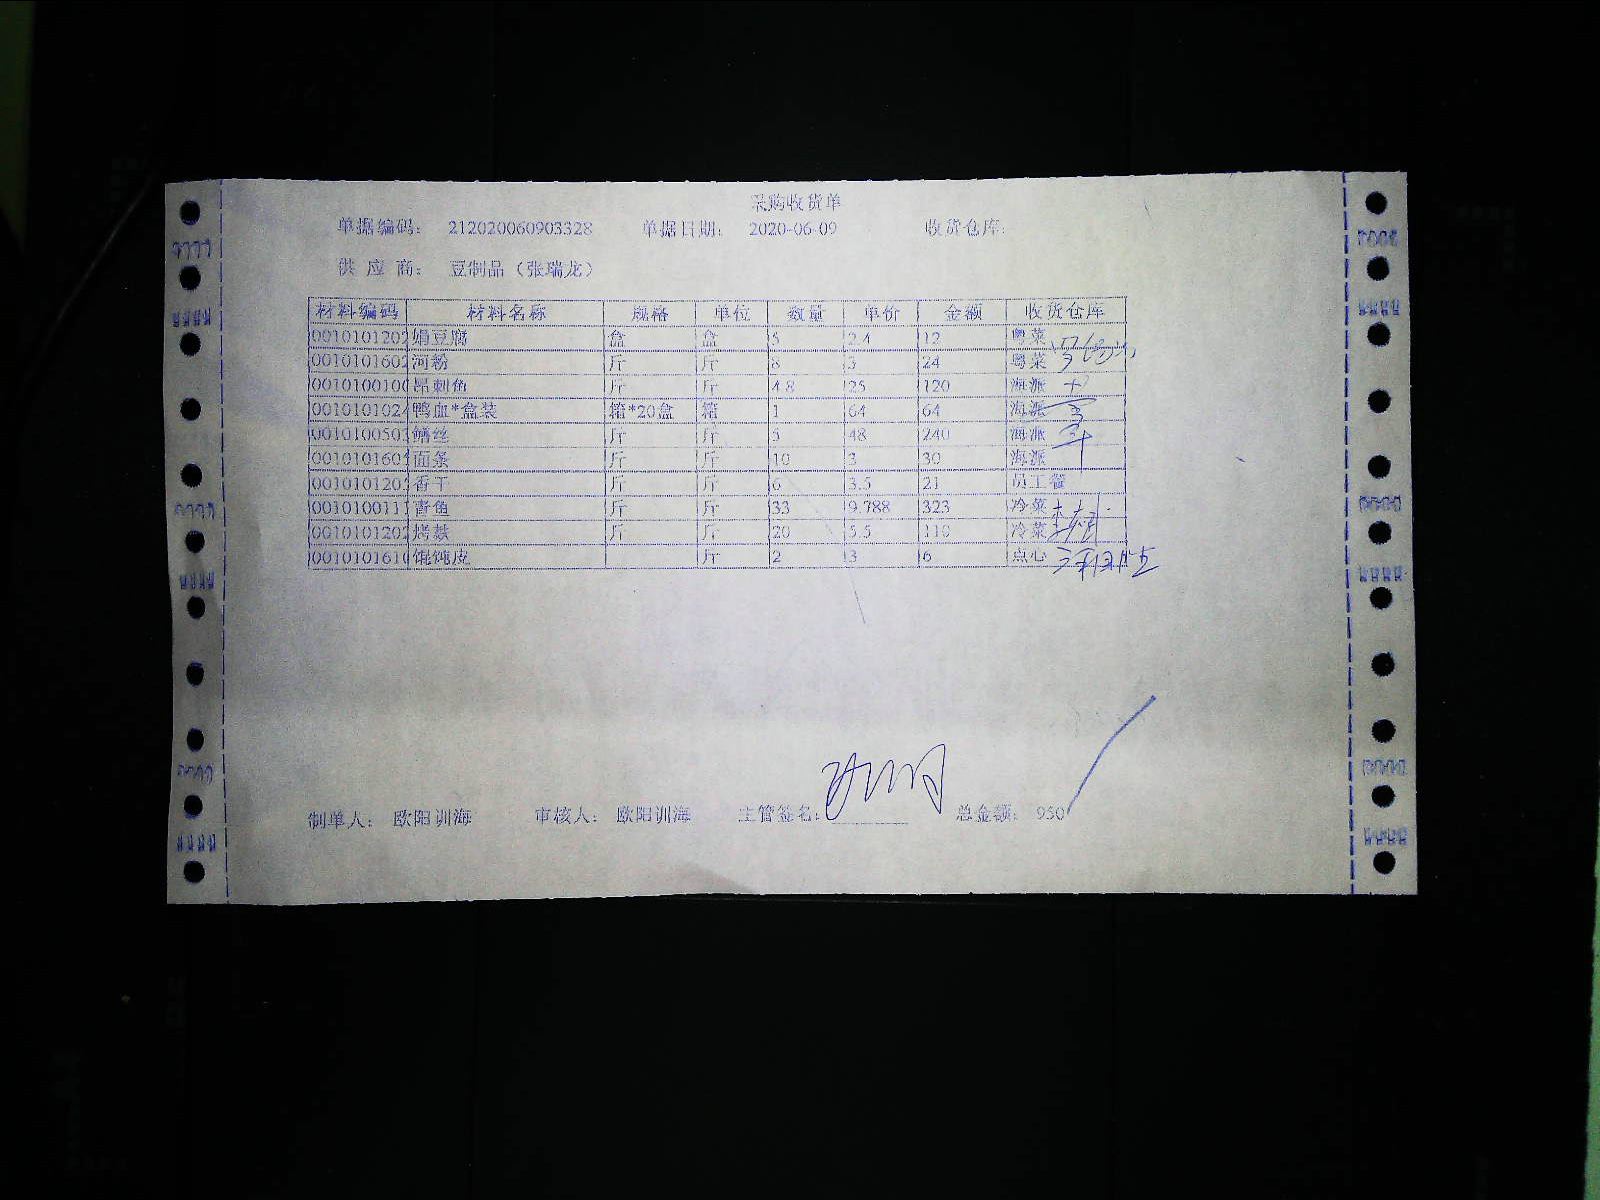 采购收货单
单据编码： 212020060903328 单据日期： 2020-06-09 收货仓库：
供 应 商： 豆制品（张瑞龙）
材料编码 材料名称 规格 单位 数量 单价 金额 收货仓库
0010101202 绢豆腐 盒 盒 5 2.4 12 粤菜
0010101602 河粉 斤 斤 8 3 24 粤菜
0010100100 昂刺鱼 斤 斤 4.8 25 120 海派
0010101024 鸭血*盒装 箱*20盒 箱 1 64 64 海派
0010100503 鳝丝 斤 斤 5 48 240 海派
0010101601 面条 斤 斤 10 3 30 海派
0010101203 香干 斤 斤 6 3.5 21 员工餐
0010100111 青鱼 斤 斤 33 9.788 323 冷菜
0010101202 烤麸 斤 斤 20 5.5 110 冷菜
0010101610 馄饨皮 斤 2 3 6 点心
制单人： 欧阳训海 审核人： 欧阳训海 主管签名： 总金额： 950